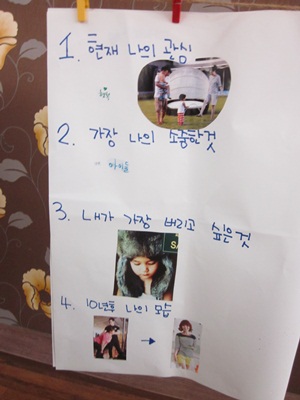 1. 현재 나의 관심
2. 가장 나의 소중한것
- 아이들
3. 내가 가장 버리고 싶은 것
SA
4. 10년후 나의 모습
→